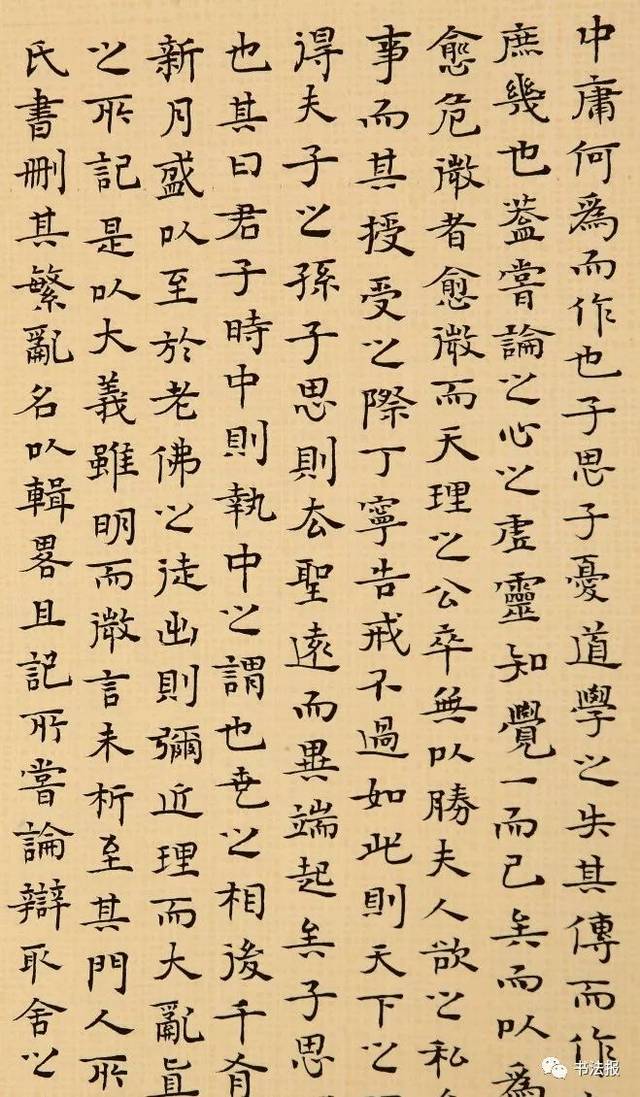 中庸何爲而作也子思子憂道學之失其傳而作
庶幾也蓋嘗論之心之虛靈知覺一而已矣而以爲
愈危微者愈微而天理之公卒無以勝夫人欲之私
事而其授受之際丁寧告戒不過如此則天下之
得夫子之孫子思則去聖遠而異端起矣子思
也其曰君子時中則執中之謂也世之相後千有
新月盛以至於老佛之徒出則彌近理而大亂眞
之所記是以大義雖明而微言未析至其門人所
氏書刪其繁亂名以輯畧且記所嘗論辯取舍之
书法报